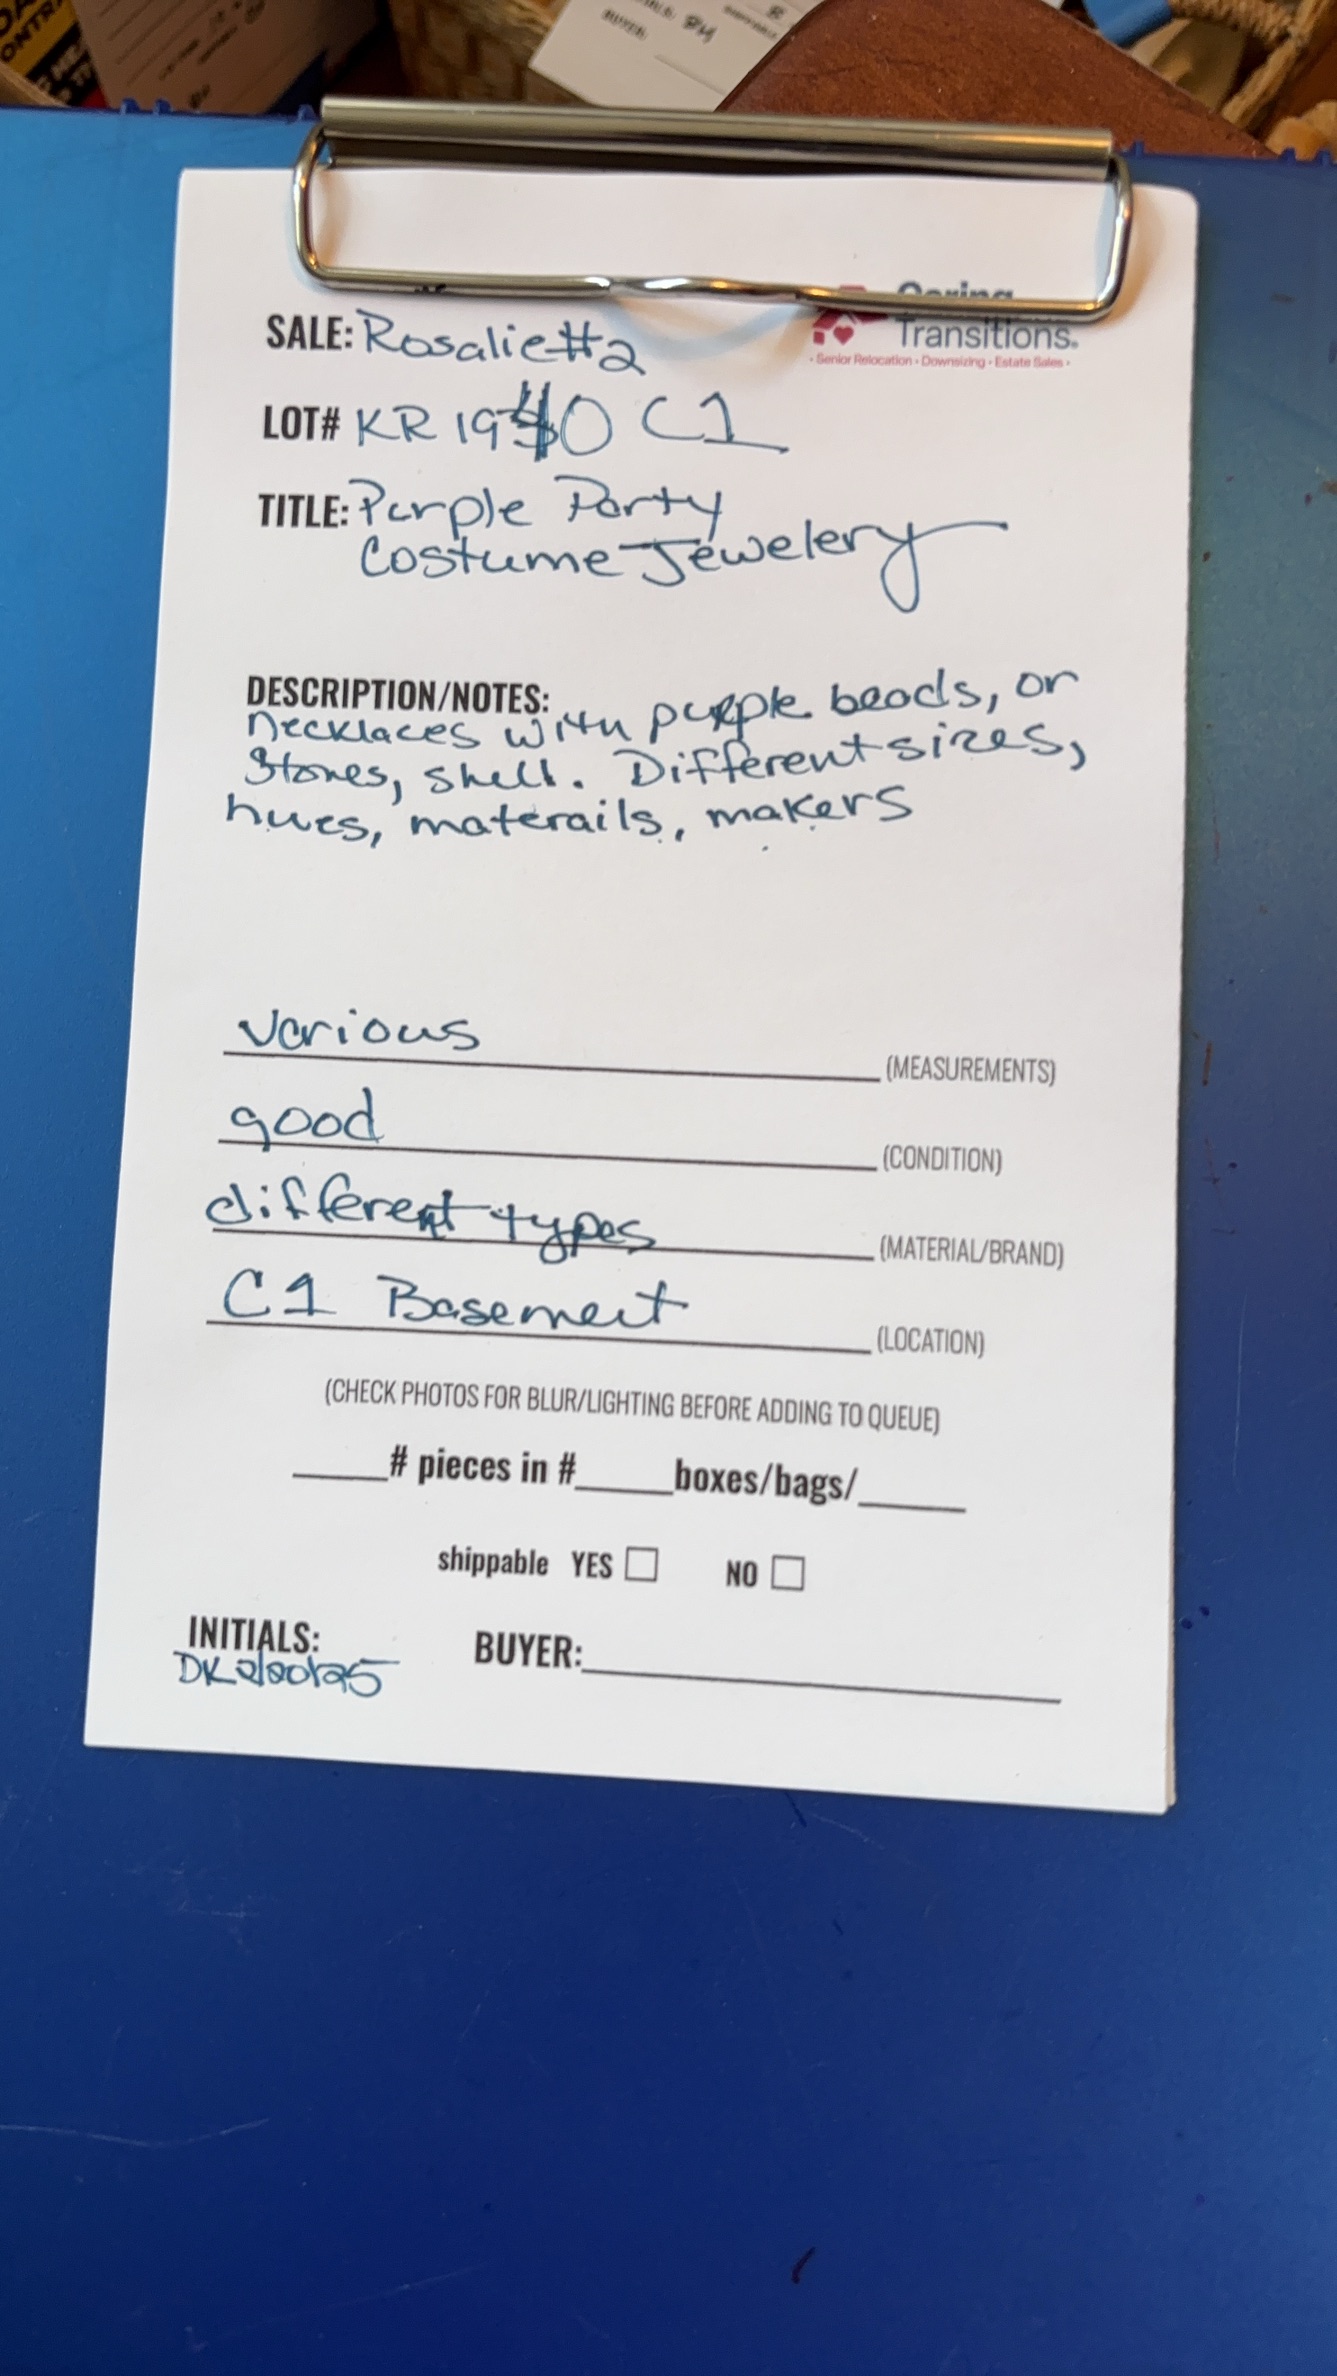 BUYER:
SALE: Rosalie #2
Transitions®
• Senior Relocation • Downsizing • Estate Sales •
LOT# KR 1940 C1
TITLE: Purple Party
Costume Jewelery
DESCRIPTION/NOTES:
necklaces with purple beads, or
Stones, shell. Different sizes,
hues, materails, makers
various (MEASUREMENTS)
good (CONDITION)
different types (MATERIAL/BRAND)
C1 Basement (LOCATION)
(CHECK PHOTOS FOR BLUR/LIGHTING BEFORE ADDING TO QUEUE)
# pieces in # boxes/bags/
shippable YES NO
INITIALS: BUYER:
DK 2/20/25